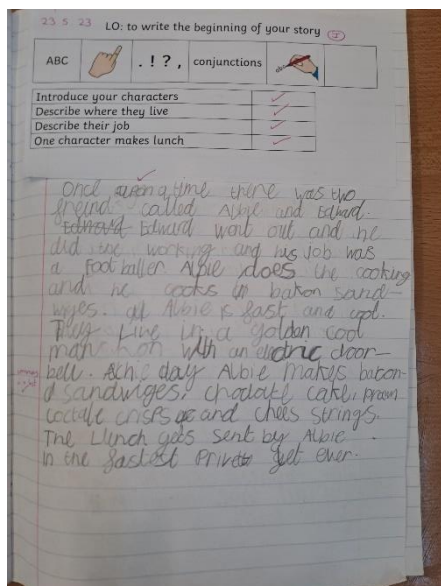 23 5 23
LO: to write the beginning of your story
I
ABC
. ! ? ,
conjunctions
Introduce your characters
Describe where they live
Describe their job
One character makes lunch
Once upon a time there was two
freind called Albie and Edward.
Edward went out and he
did the working and his job was
a foot baller Albie does the cooking
and he cooks bakon sand-
wiges. Albie is fast and cool.
They Live in a goldan cool
man hon with an electric door-
bell. Ach day Albie makes bacon-
d sandwiges, choclate cake, prawn
coctale crisps and chees strings.
The Llunch goes sent by Albie
in the fastest Privett get ever.